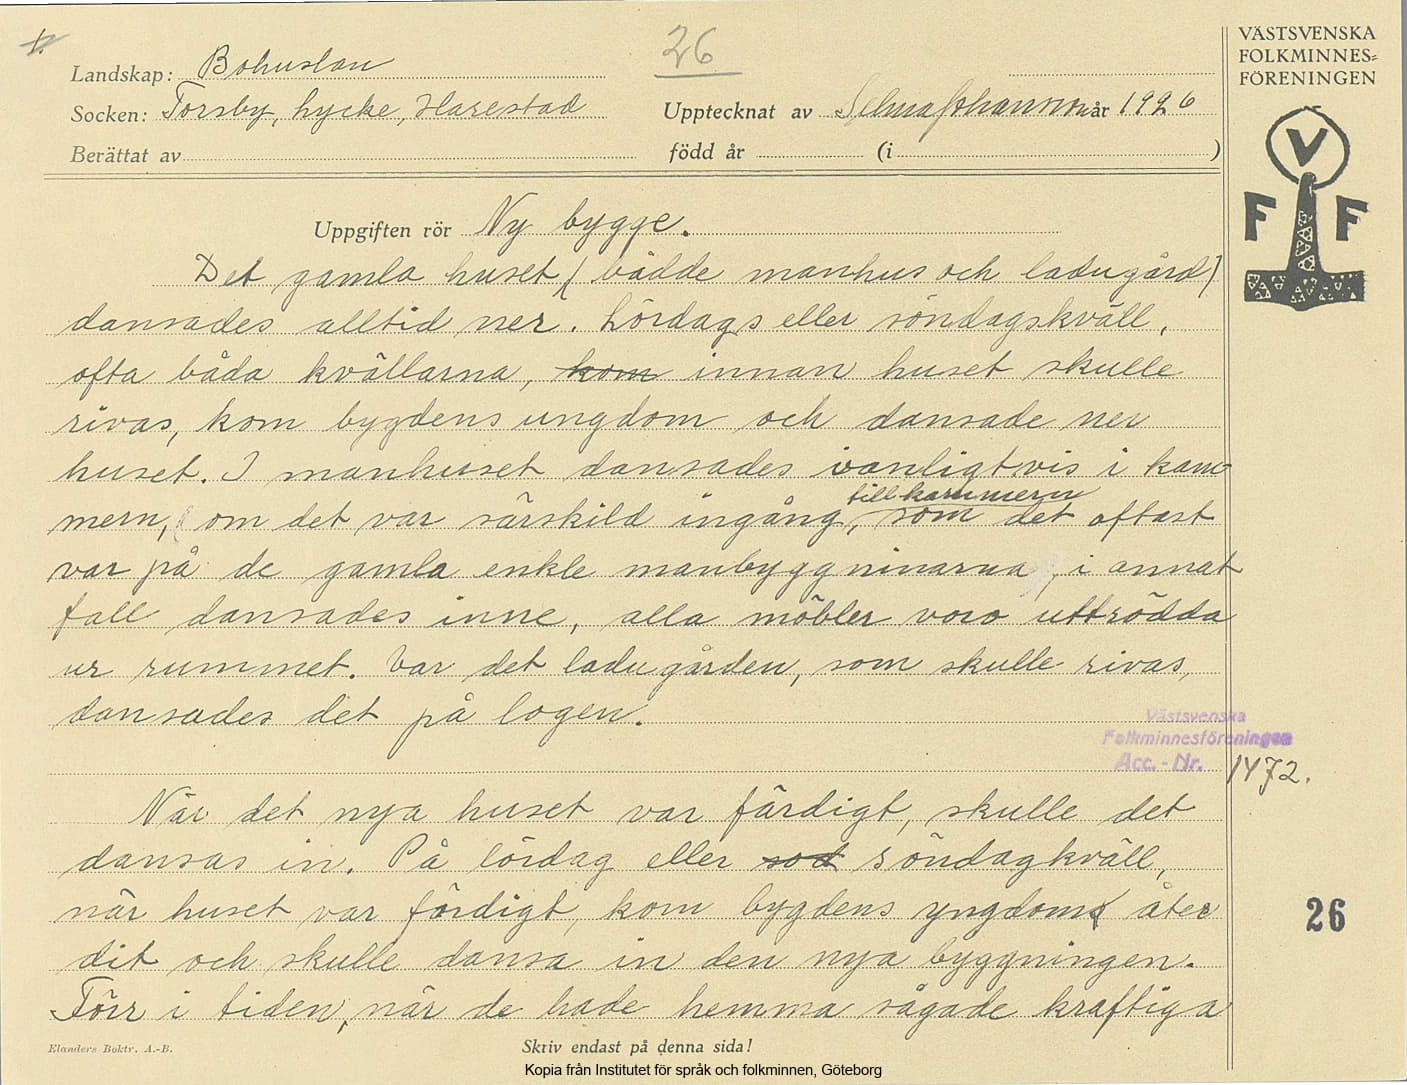 1.
26
VÄSTSVENSKA
FOLKMINNES=
FÖRENINGEN
Landskap: Bohuslän
Socken: Torsby, Lycke, Harestad
Upptecknat av Selma Johansson år 1926
Berättat av
född år (i )
V
F F
Uppgiften rör Ny bygge.
Det gamla huset (bådde manhus och ladugård)
dansades alltid ner. Lördags eller söndagskväll,
ofta båda kvällarna, kom innan huset skulle
rivas, kom bygdens ungdom och dansade ner
huset. I manhuset dansades vanligtvis i kam
till kammern
mern, om det var särskild ingång, som det oftast
var på de gamla enkle manbyggninarna, i annat
fall dansades inne, alla möbler voro uttrödda
ur rummet. Var det ladugården, som skulle rivas,
dansades det på logen.
Västsvenska
Folkminnesföreningen
Acc. - Nr. 1472.
När det nya huset var färdigt, skulle det
dansas in. På lördag eller sod söndagkväll,
när huset var färdigt, kom bygdens yngdom åter
dit och skulle dansa in den nya byggningen.
Förr i tiden, när de hade hemma sågade kraftiga
26
Elanders Boktr. A.-B.
Skriv endast på denna sida!
Kopia från Institutet för språk och folkminnen, Göteborg